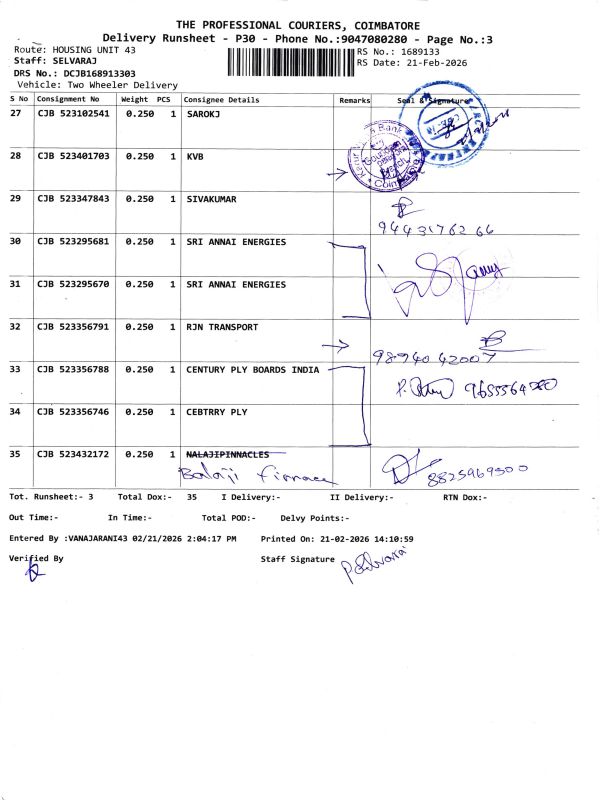 THE PROFESSIONAL COURIERS, COIMBATORE
Delivery Runsheet - P30 - Phone No.:9047080280 - Page No.:3
Route: HOUSING UNIT 43
RS No.: 1689133
Staff: SELVARAJ
RS Date: 21-Feb-2026
DRS No.: DCJB168913303
Vehicle: Two Wheeler Delivery
S No Consignment No Weight PCS Consignee Details Remarks Seal & Signature
27 CJB 523102541 0.250 1 SAROKJ
28 CJB 523401703 0.250 1 KVB
29 CJB 523347843 0.250 1 SIVAKUMAR
9443176266
30 CJB 523295681 0.250 1 SRI ANNAI ENERGIES
31 CJB 523295670 0.250 1 SRI ANNAI ENERGIES
32 CJB 523356791 0.250 1 RJN TRANSPORT
9894042007
33 CJB 523356788 0.250 1 CENTURY PLY BOARDS INDIA
34 CJB 523356746 0.250 1 CEBTRRY PLY
35 CJB 523432172 0.250 1 NALAJIPINNACLES
Balaji
8825969500
Tot. Runsheet:- 3 Total Dox:- 35 I Delivery:- II Delivery:- RTN Dox:-
Out Time:- In Time:- Total POD:- Delvy Points:-
Entered By :VANAJARANI43 02/21/2026 2:04:17 PM Printed On: 21-02-2026 14:10:59
Verified By Staff Signature